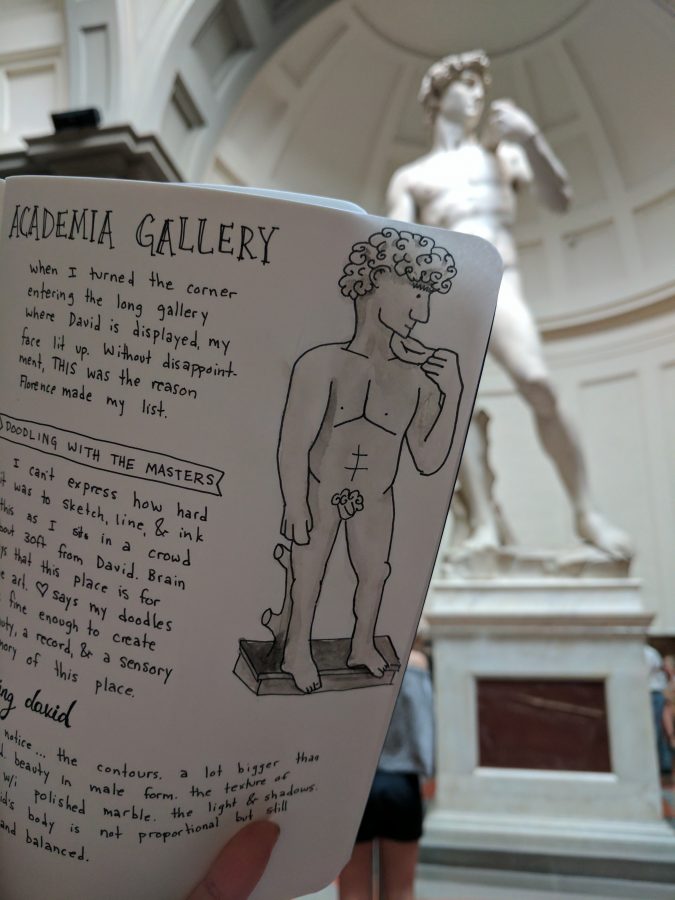 ACADEMIA GALLERY
when I turned the corner
entering the long gallery
where David is displayed, my
face lit up. Without disappoint-
ment, THIS was the reason
Florence made my list.
DOODLING WITH THE MASTERS
I can't express how hard
it was to sketch, line, & ink
this as I sit in a crowd
30ft from David. Brain
that this place is for
art. ♡ says my doodles
fine enough to create
a record, & a sensory
of this place.
david
notice... the contours. a lot bigger than
beauty in male form. the texture of
w/i polished marble. the light & shadows.
body is not proportional but still
and balanced.